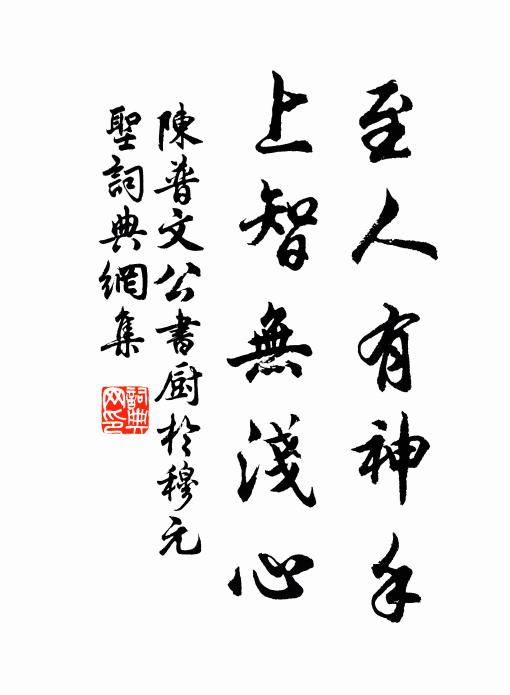 至人有神手
上智無淺心
陳普文公書厨於穆元
聖詞典網集
詞典
网印